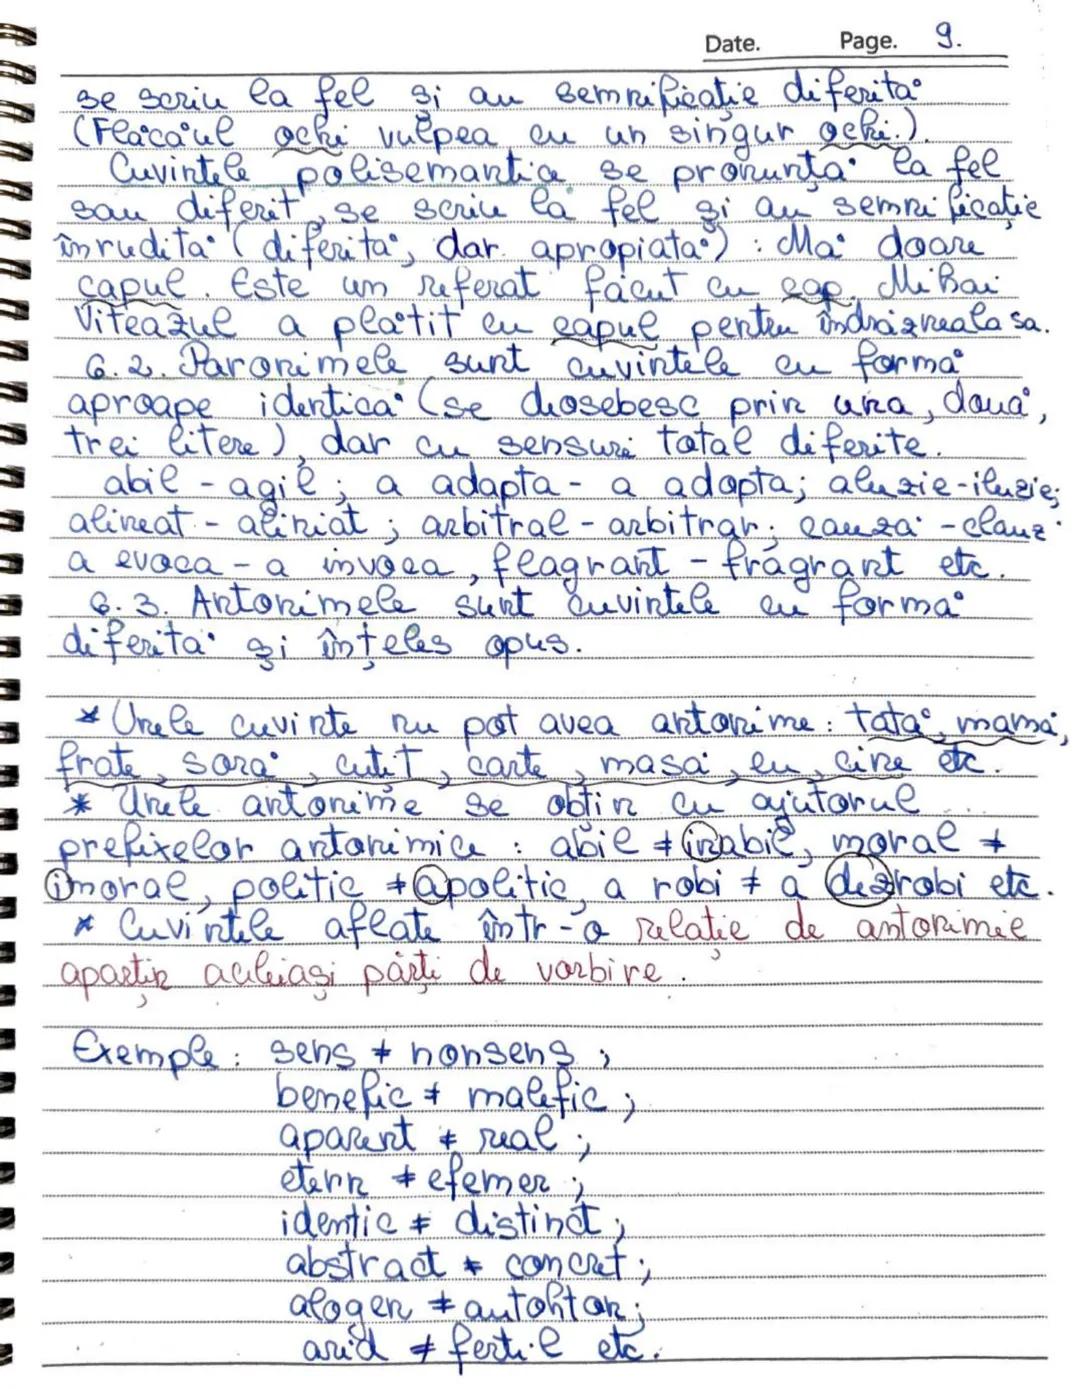 Date. Page. 9.
se scriu la fel și au semnificație diferită
(Flăcăul ochi vulpea cu un singur ochi.).
Cuvintele polisemantice se pronunță la fel
sau diferit, se scriu la fel și au semnificație
înrudită (diferită, dar apropiată) : Mă doare
capul. Este un referat făcut cu cap. Mihai
Viteazul a plătit cu capul pentru îndrăzneala sa.
6.2. Paronimele sunt cuvintele cu formă
aproape identică (se deosebesc prin una, două,
trei litere), dar cu sensuri total diferite.
abil - agil ; a adapta - a adopta; aluzie-iluzie;
alineat - aliniat ; arbitral - arbitrar; cauză - clauz
a evoca - a invoca, flagrant - fragrant etc.
6.3. Antonimele sunt cuvintele cu formă
diferită și înțeles opus.
* Unele cuvinte nu pot avea antonime : tată, mamă,
frate, soră, cuțit, carte, masă, eu, cine etc.
* Unele antonime se obțin cu ajutorul
prefixelor antonimice : abil ≠ inabil, moral ≠
imoral, politic ≠ apolitic, a robi ≠ a dezrobi etc.
* Cuvintele aflate într-o relație de antonimie
aparțin aceleiași părți de vorbire.
Exemple : sens ≠ nonsens ;
benefic ≠ malefic ;
aparent ≠ real ;
etern ≠ efemer ;
identic ≠ distinct ;
abstract ≠ concret ;
alogen ≠ autohton ;
arid ≠ fertil etc.